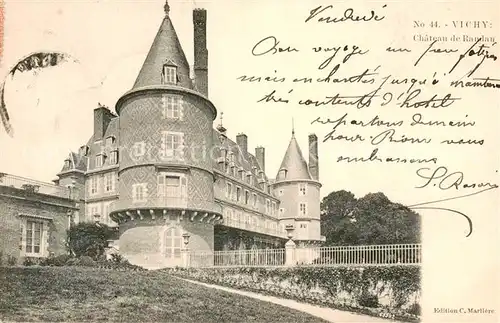 No 44. - VICHY:
Château de Randan
Vendredi
Bon voyage un peu
mais enchantés jusqu'à maintenant
très contents d'hotel
repartons demain
pour Riom vous
embrassant
Edition C. Marlière